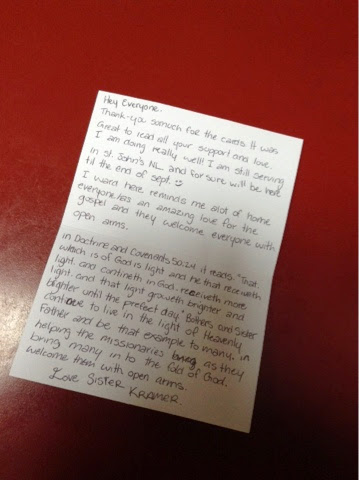 Hey Everyone.
Thank-you somuch for the cards. It was
Great to read all your support and love.
I am doing really well! I am still serving
in St. John's NL and for sure will be here
til the end of sept. :)
I ward here reminds me alot of home
everyone has an amazing love for the
gospel and they welcome everyone with
open arms.
in Doctrine and Covenants 50:24 it reads. "That
which is of God is light and he that receiveth
light and contineth in God. receiveth more
light. and that light groweth brighter and
brighter until the prefect day." Bothers and Sister
continue to live in the light of Heavenly
Father and be that example to many. in
helping the missionaries bring as they
bring many in to the fold of God.
welcome them with open arms.
Love Sister Kramer